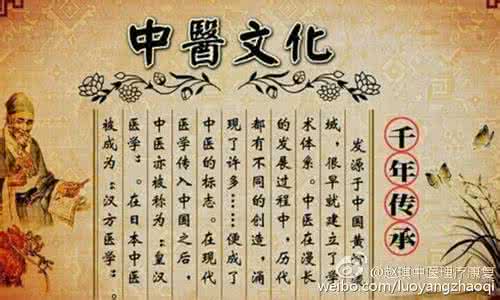 中醫文化
千年传承
发源于中国黄河流
域，很早就建立了学
术体系。中医在漫长
的发展过程中，历代
都有不同的创造，涌
现了许多……便成了
中医的标志。在现代
医学传入中国之后，
中医亦被称为“皇汉
医学”。在日本中医
被成为“汉方医学”。
@赵琪中医理疗康复
weibo.com/luoyangzhaoqi